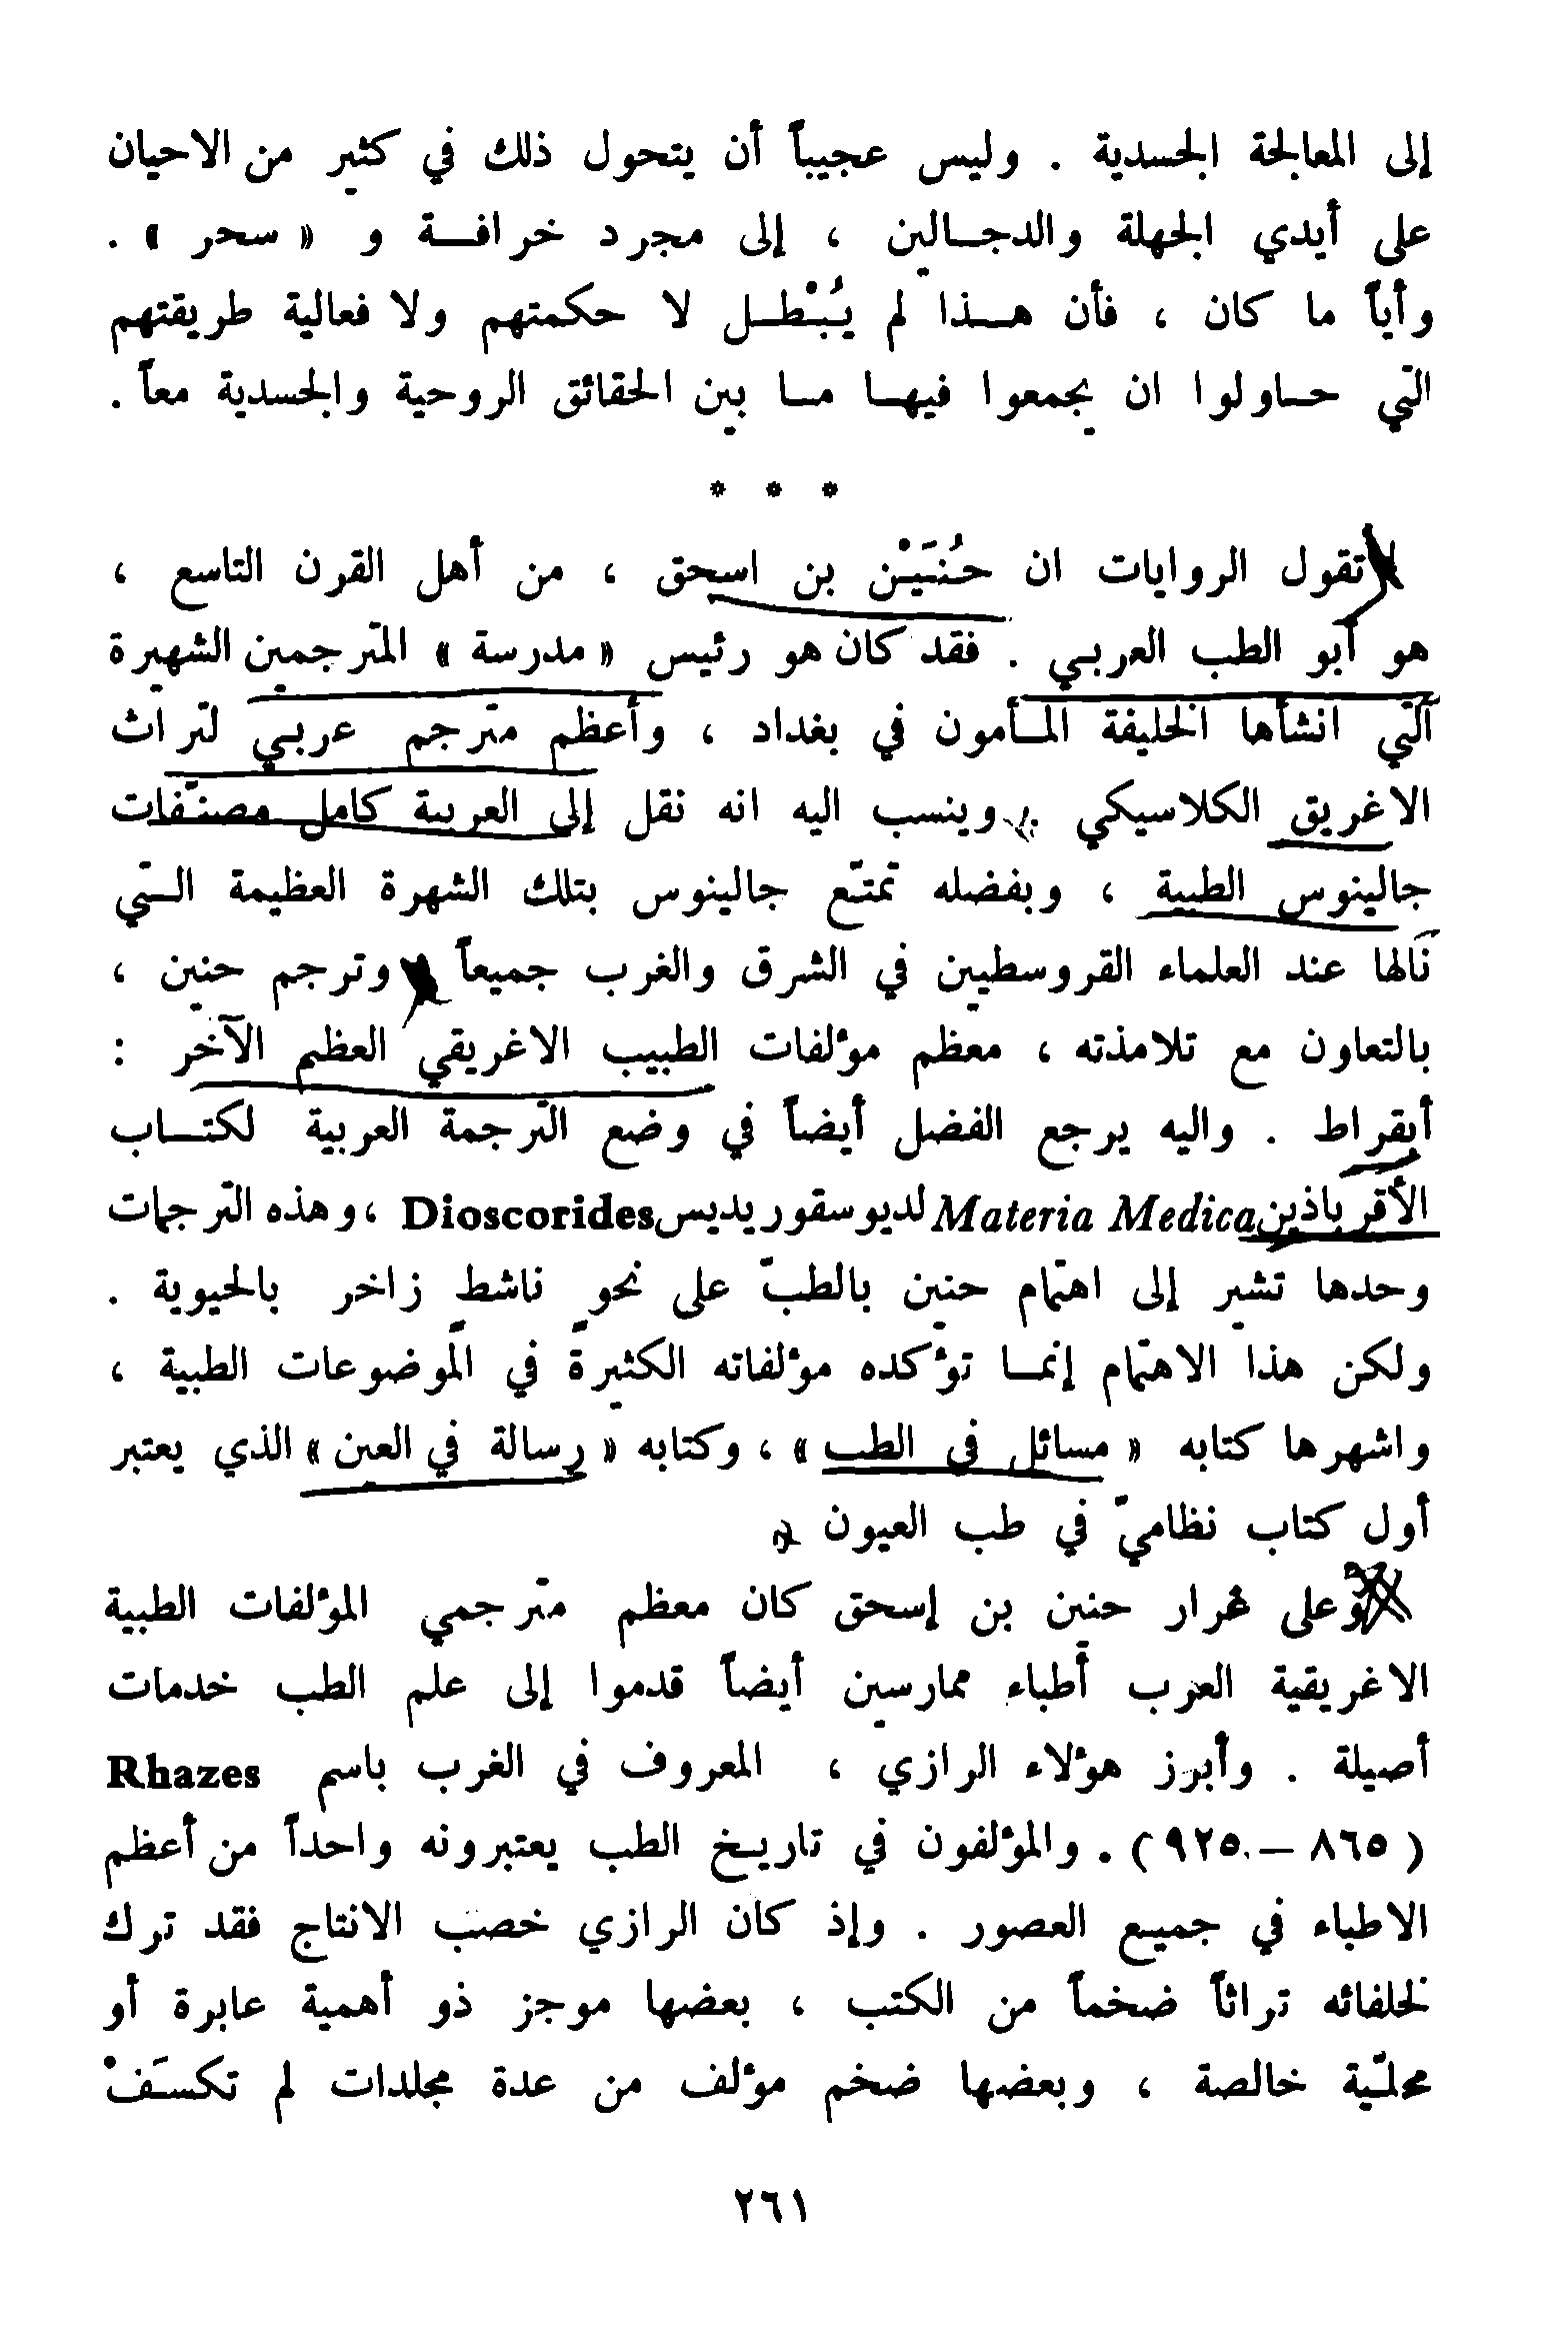 إلى المعالجة الجسدية . وليس عجيباً أن يتحول ذلك في كثير من الاحيان
على أيدي الجهلة والدجـالين ، إلى مجرد خرافـة و « سحر » .
وأياً ما كان ، فأن هـذا لم يُبْطـل لا حكمتهم ولا فعالية طريقتهم
التي حـاولوا ان يجمعوا فيهـا مـا بين الحقائق الروحية والجسدية معاً .
* * *
تقول الروايات ان حُنَيْن بن اسحق ، من أهل القرن التاسع ،
هو أبو الطب العربي . فقد كان هو رئيس « مدرسة » المترجمين الشهيرة
التي انشأها الخليفة المـأمون في بغداد ، وأعظم مترجم عربي لتراث
الاغريق الكلاسيكي . وينسب اليه انه نقل إلى العربية كامل مصنّفات
جالينوس الطبية ، وبفضله تمتّع جالينوس بتلك الشهرة العظيمة الـتي
نالها عند العلماء القروسطيين في الشرق والغرب جميعاً وترجم حنين ،
بالتعاون مع تلامذته ، معظم مؤلفات الطبيب الاغريقي العظيم الآخر :
أبقراط . واليه يرجع الفضل أيضاً في وضع الترجمة العربية لكتـاب
الأقرباذين Materia Medica لديوسقوريديس Dioscorides ، وهذه الترجمات
وحدها تشير إلى اهتمام حنين بالطبّ على نحوٍ ناشطٍ زاخر بالحيوية .
ولكن هذا الاهتمام إنمـا تؤكده مؤلفاته الكثيرة في الموضوعات الطبية ،
واشهرها كتابه « مسائل في الطب » ، وكتابه « رسالة في العين » الذي يعتبر
أول كتاب نظاميّ في طب العيون
وعلى غرار حنين بن إسحق كان معظم مترجمي المؤلفات الطبية
الاغريقية العرب أطباء ممارسين أيضاً قدموا إلى علم الطب خدمات
أصيلة . وأبرز هؤلاء الرازي ، المعروف في الغرب باسم Rhazes
( ٨٦٥ – ٩٢٥ ) . والمؤلفون في تاريخ الطب يعتبرونه واحداً من أعظم
الاطباء في جميع العصور . وإذ كان الرازي خصب الانتاج فقد ترك
لخلفائه تراثاً ضخماً من الكتب ، بعضها موجز ذو أهمية عابرة أو
محلـّية خالصة ، وبعضها ضخم مؤلف من عدة مجلدات لم تكسَفْ
٢٦١